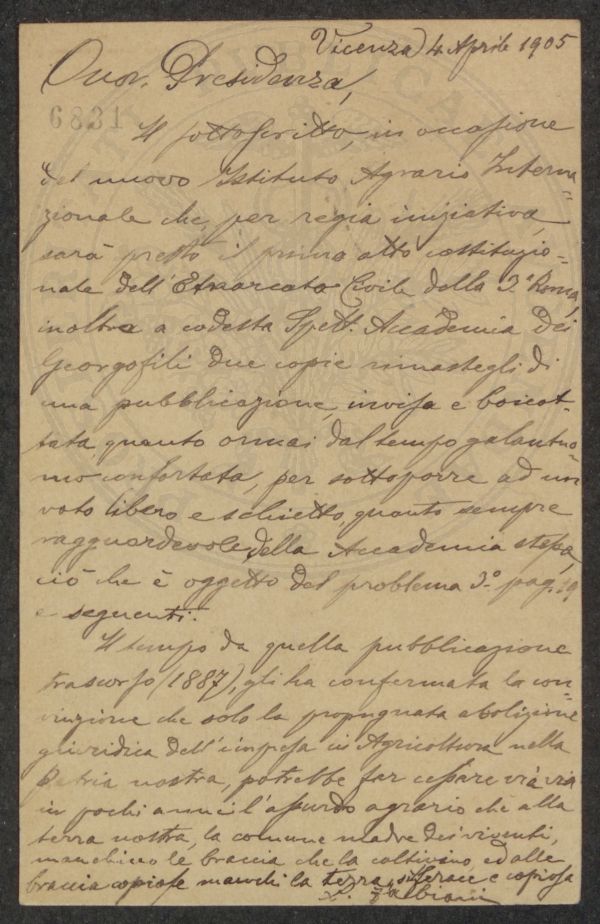 Vicenza 4 Aprile 1905
Onor. Presidenza,
6831
Il sottoscritto, in occasione
del nuovo Istituto Agrario Interna=
zionale che, per regia iniziativa,
sarà presto il primo atto costituzio=
nale dell'Etnarcato Civile della 3ª Roma,
inoltra a codesta Spett. Accademia dei
Georgofili due copie rimastegli di
una pubblicazione, invisa e boicot=
tata, quanto ormai dal tempo galantuo=
mo confortata, per sottoporre ad un
voto libero e schietto, quanto sempre
ragguardevole, della Accademia stessa,
ciò che è oggetto del problema 3º pag. 19
e seguenti.
Il tempo da quella pubblicazione
trascorso (1887), gli ha confermata la con=
vinzione che solo la propugnata abolizione
giuridica dell'impresa in Agricoltura nella
Patria nostra, potrebbe far cessare via via
in pochi anni l'assurdo agrario che alla
terra nostra, la comune madre dei viventi,
manchino le braccia che la coltivino ed alle
braccia copiose manchi la terra, sì ferace e copiosa